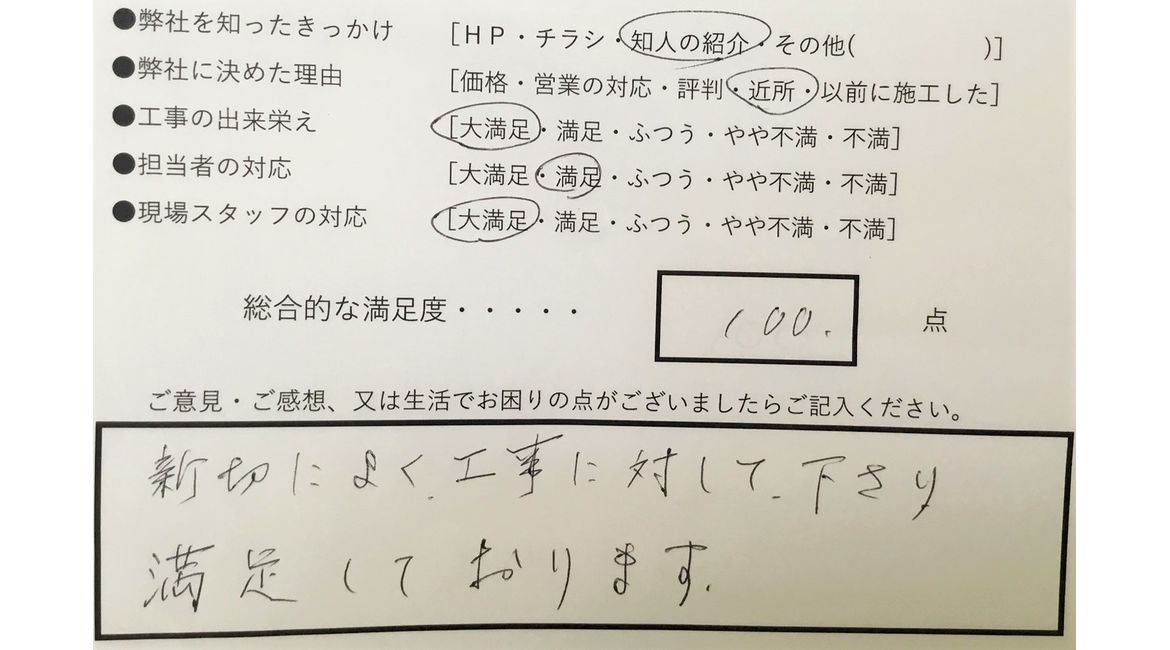 ●弊社を知ったきっかけ [ＨＰ・チラシ・知人の紹介・その他( )]
●弊社に決めた理由 [価格・営業の対応・評判・近所・以前に施工した]
●工事の出来栄え [大満足・満足・ふつう・やや不満・不満]
●担当者の対応 [大満足・満足・ふつう・やや不満・不満]
●現場スタッフの対応 [大満足・満足・ふつう・やや不満・不満]
総合的な満足度・・・・・ 100. 点
ご意見・ご感想、又は生活でお困りの点がございましたらご記入ください。
新切によく、工事に対して、下さり
満足しております.